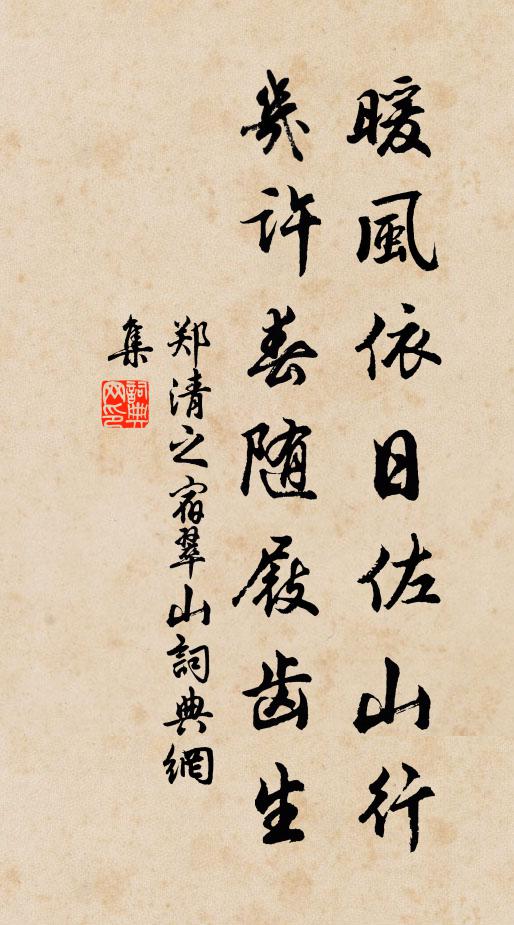 暖風依日佐山行
幾许春随屐齿生
郑清之宿翠山詞典網
集
詞典
网印